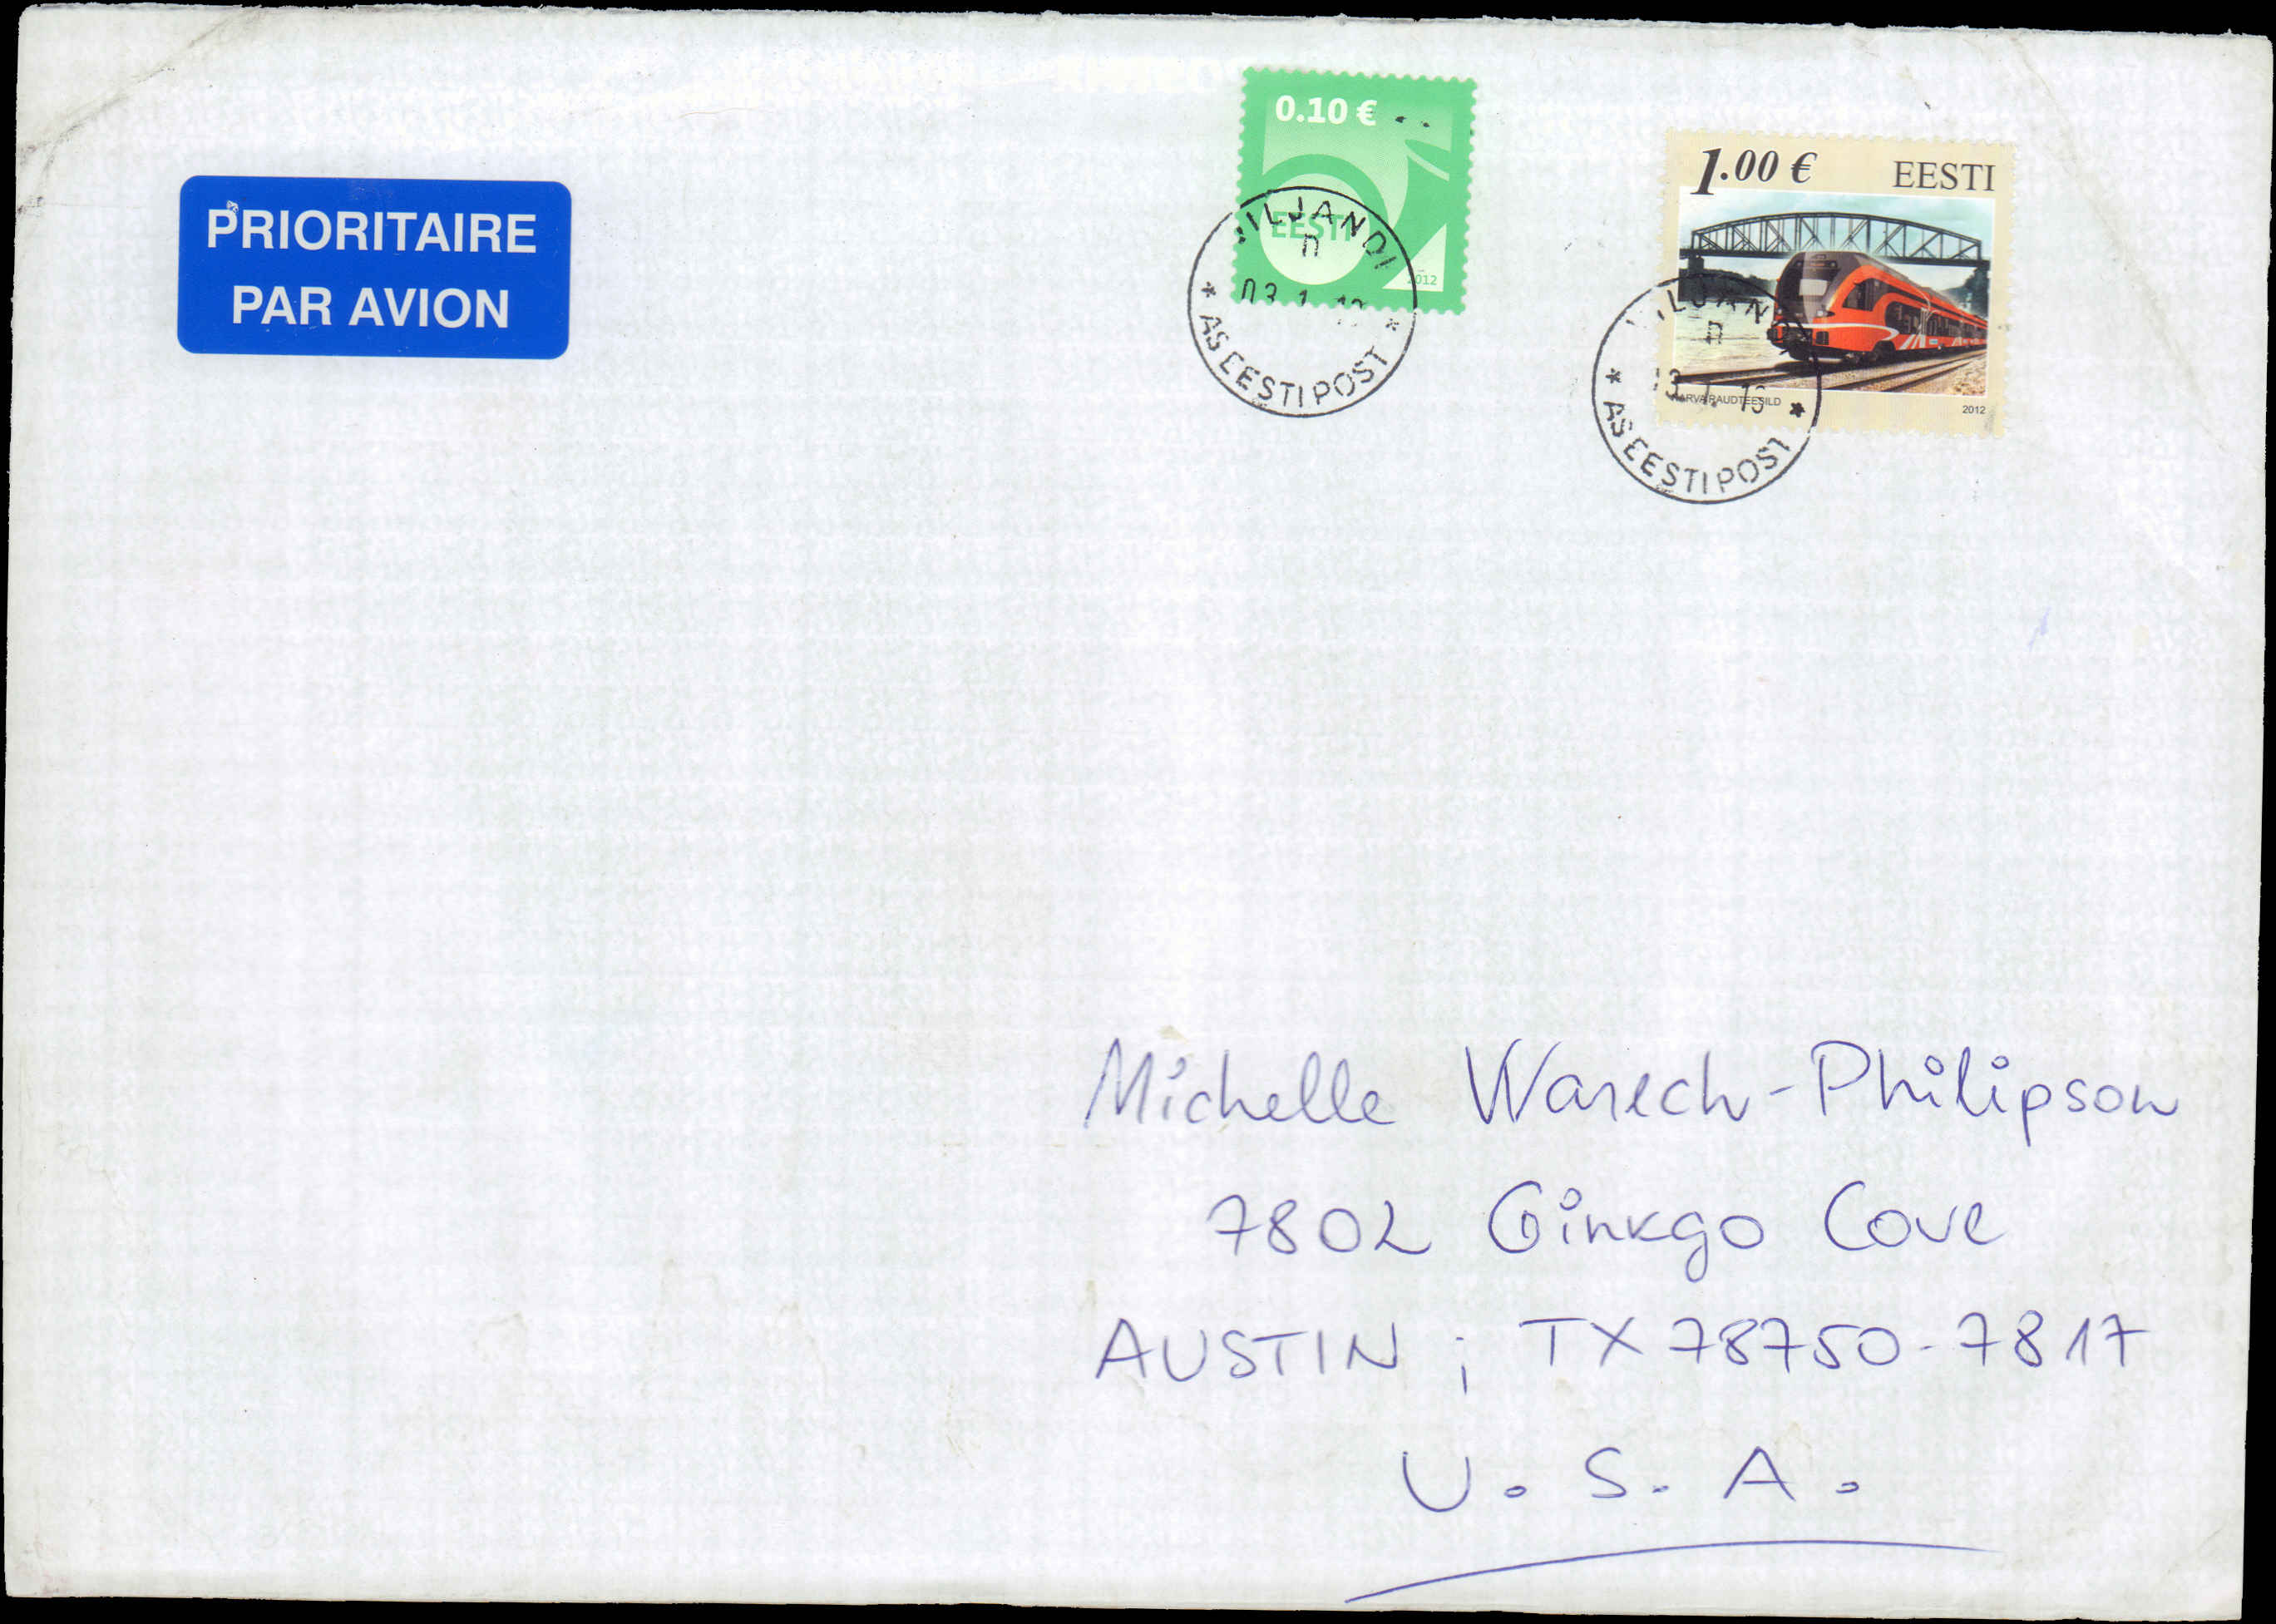 PRIORITAIRE
PAR AVION
0.10 €
EESTI
2012
VILJANDI
AS EESTI POST
1.00 € EESTI
NARVA RAUDTEESILD
2012
VILJANDI
AS EESTI POST
Michelle Warech-Philipson
7802 Ginkgo Cove
AUSTIN ; TX 78750-7817
U.S.A.